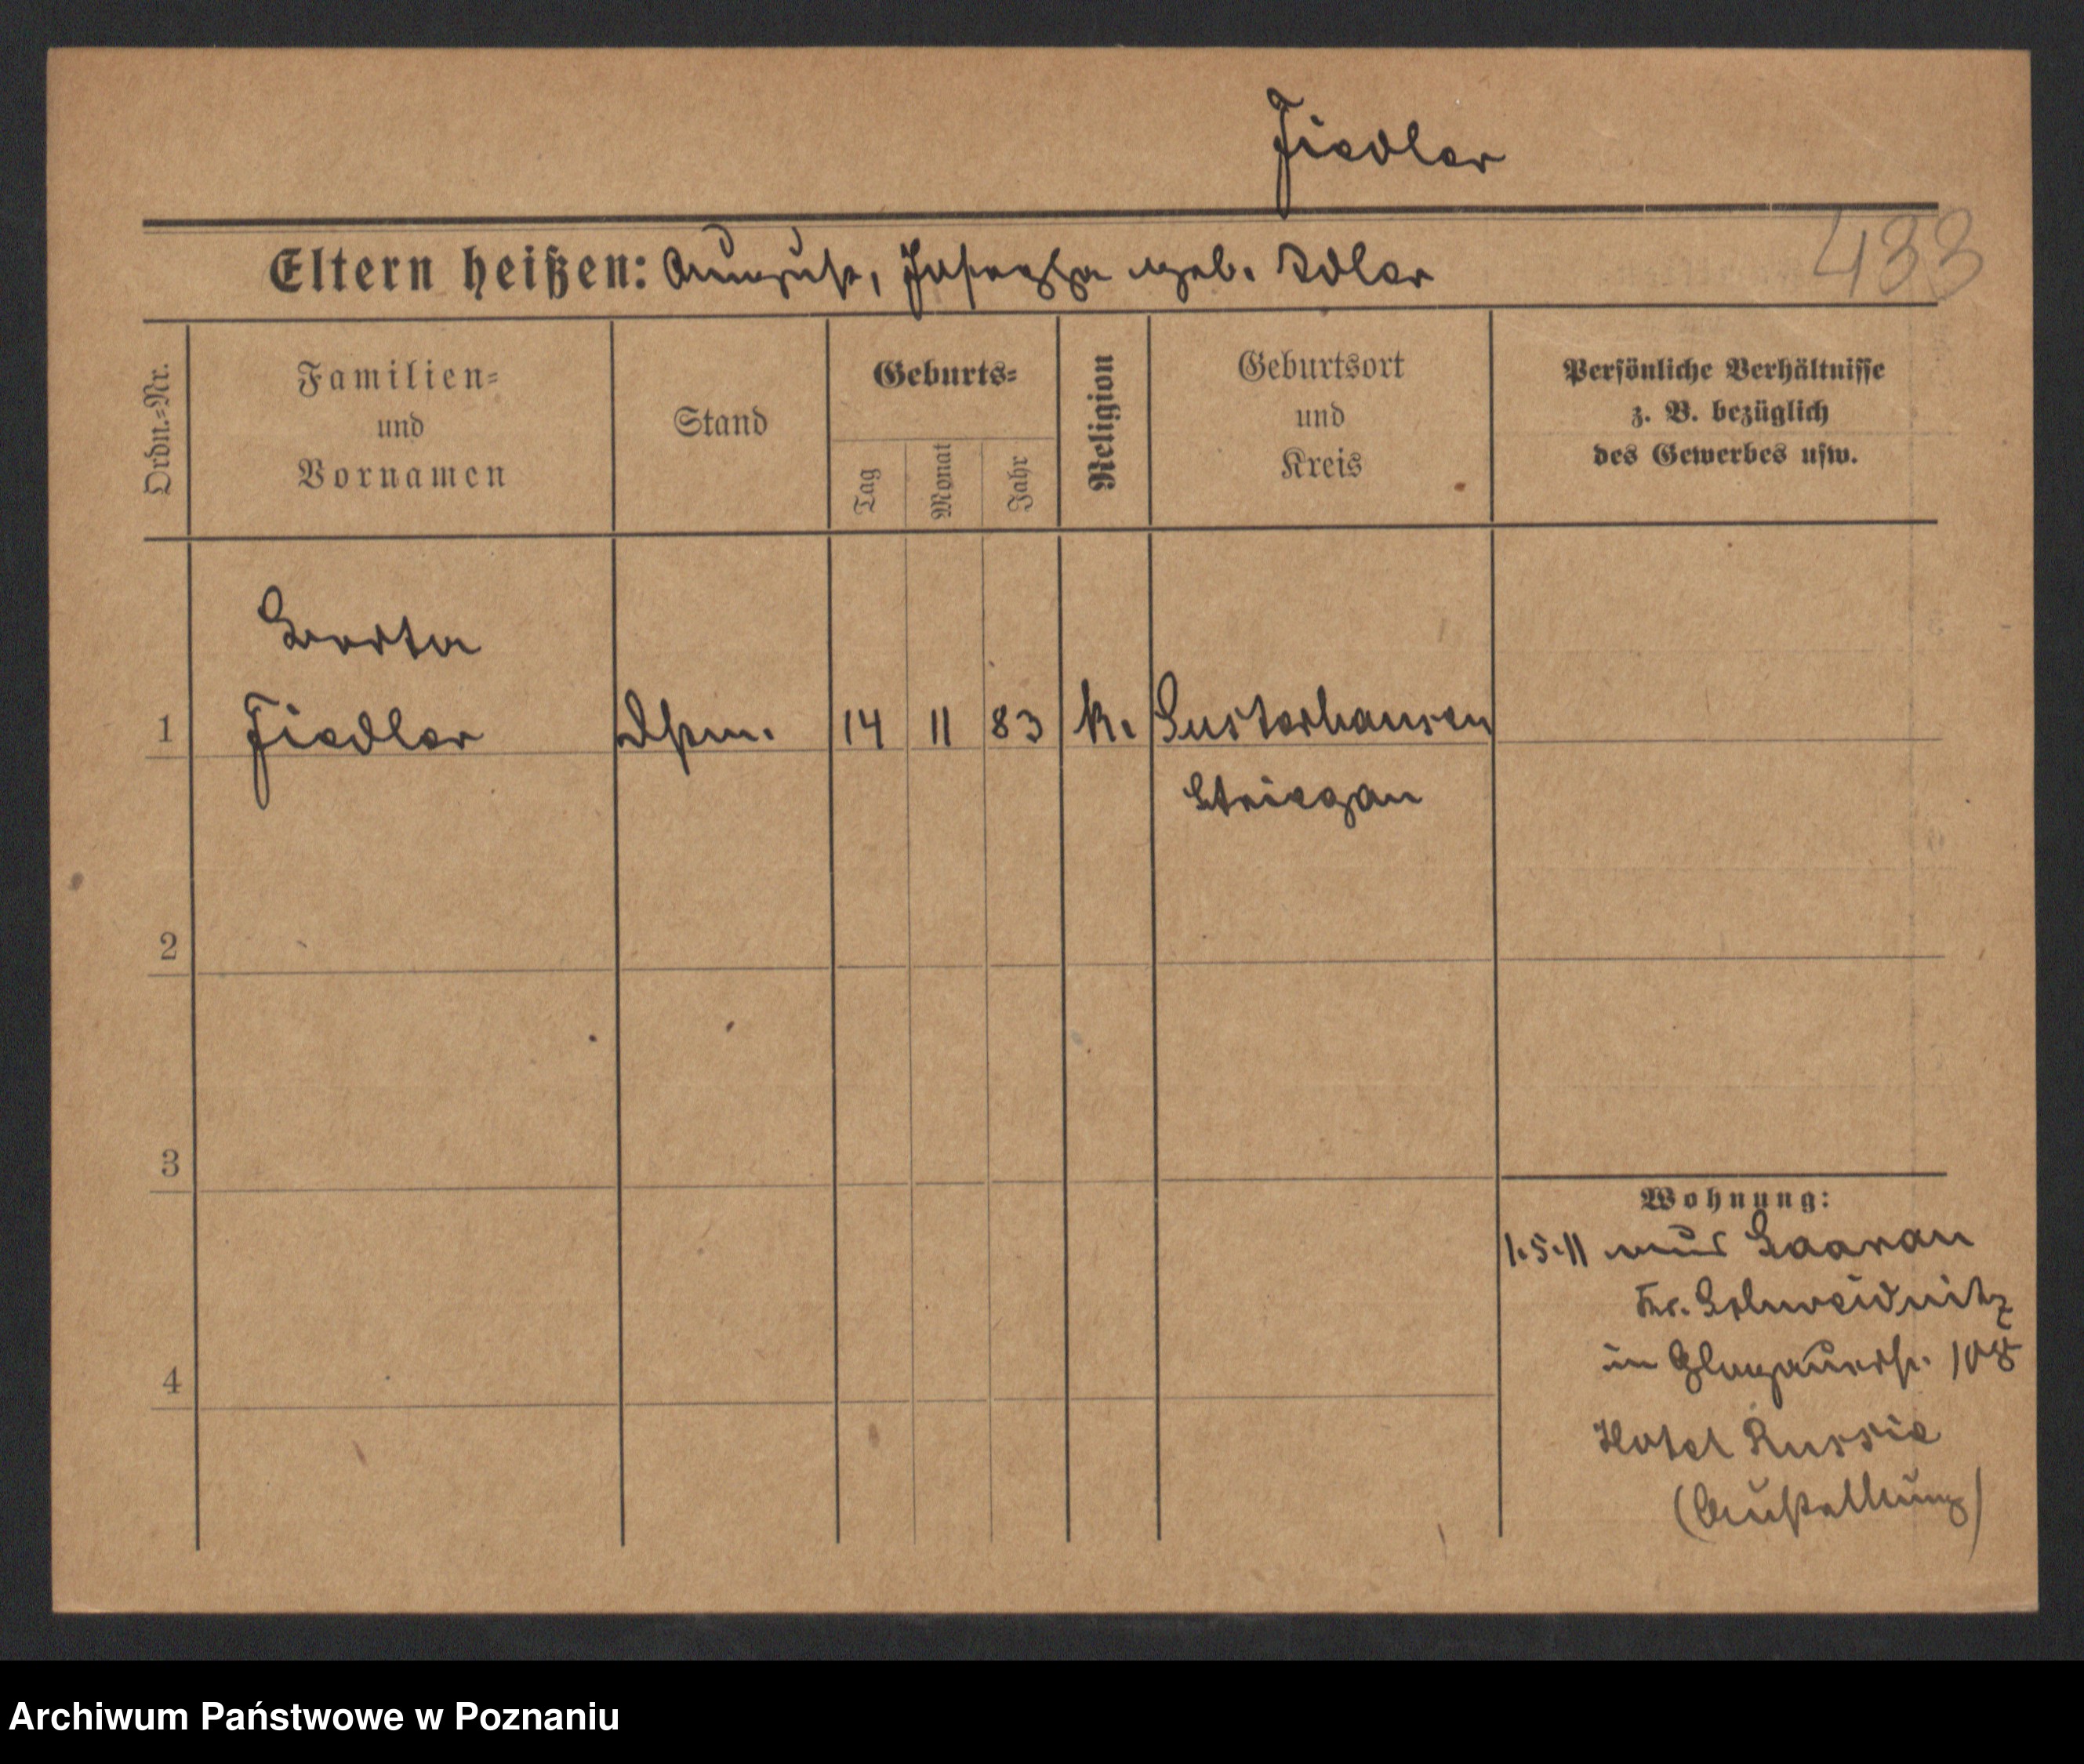 Fiedler
Eltern heißen: August, Josepha geb. Adler
433
Ordn.=Nr.
Familien=
und
Vornamen
Stand
Geburts=
Tag
Monat
Jahr
Religion
Geburtsort
und
Kreis
Persönliche Verhältnisse
z. B. bezüglich
des Gewerbes usw.
1
Fiedler
14 11 83 k.
Striegau
2
3
4
Wohnung:
1.5.11 aus Saarau
Kr. Schweidnitz
in Glogauerstr. 108
Hotel Russie
Archiwum Państwowe w Poznaniu